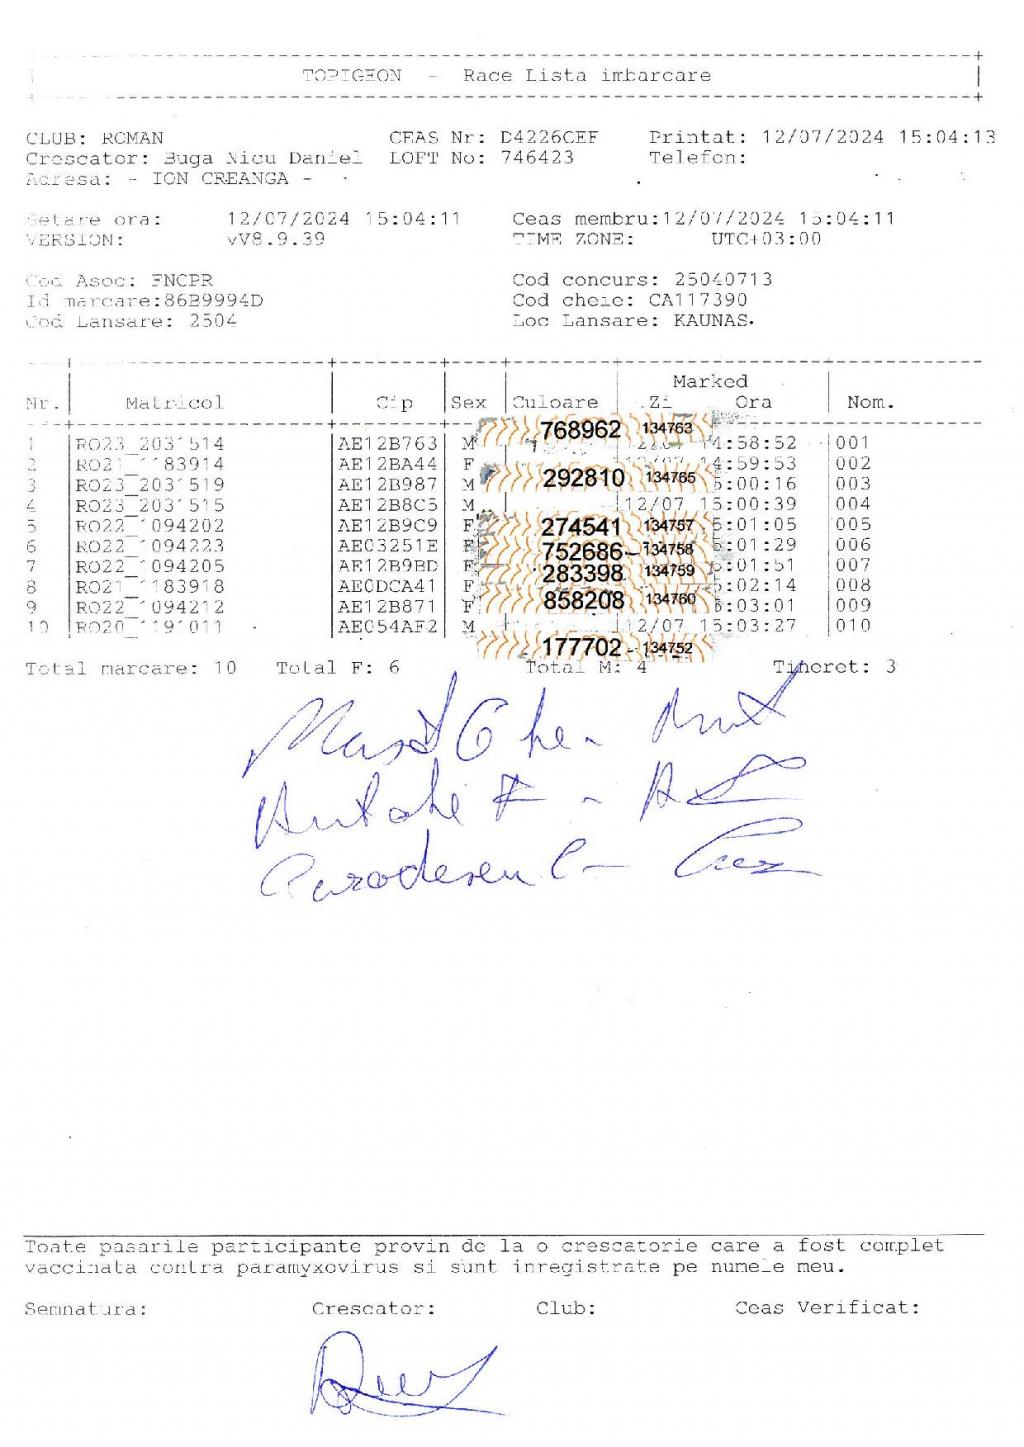 TOPIGEON - Race Lista imbarcare
CLUB: ROMAN CEAS Nr: D4226CEF Printat: 12/07/2024 15:04:13
Crescator: Buga Nicu Daniel LOFT No: 746423 Telefon:
Adresa: - ION CREANGA -
Setare ora: 12/07/2024 15:04:11 Ceas membru:12/07/2024 15:04:11
VERSION: vV8.9.39 TIME ZONE: UTC+03:00
Cod Asoc: FNCPR Cod concurs: 25040713
Id marcare:86B9994D Cod cheie: CA117390
Cod Lansare: 2504 Loc Lansare: KAUNAS
Marked
Nr. Matricol Cip Sex Culoare Zi Ora Nom.
768962 134763
1 RO23_2031514 AE12B763 M 4:58:52 001
2 RO21_1183914 AE12BA44 F 12/07 14:59:53 002
292810 134765
3 RO23_2031519 AE12B987 M 5:00:16 003
4 RO23_2031515 AE12B8C5 M 12/07 15:00:39 004
274541 134757
5 RO22_1094202 AE12B9C9 F 5:01:05 005
752686 134758
6 RO22_1094223 AE03251E F 5:01:29 006
283398 134759
7 RO22_1094205 AE12B9BD F 5:01:51 007
8 RO21_1183918 AE0DCA41 F 5:02:14 008
858208 134760
9 RO22_1094212 AE12B871 F 5:03:01 009
10 RO20_1191011 AE054AF2 M 12/07 15:03:27 010
177702 134752
Total marcare: 10 Total F: 6 Total M: 4 Tineret: 3
Toate pasarile participante provin de la o crescatorie care a fost complet
vaccinata contra paramyxovirus si sunt inregistrate pe numele meu.
Semnatura: Crescator: Club: Ceas Verificat: